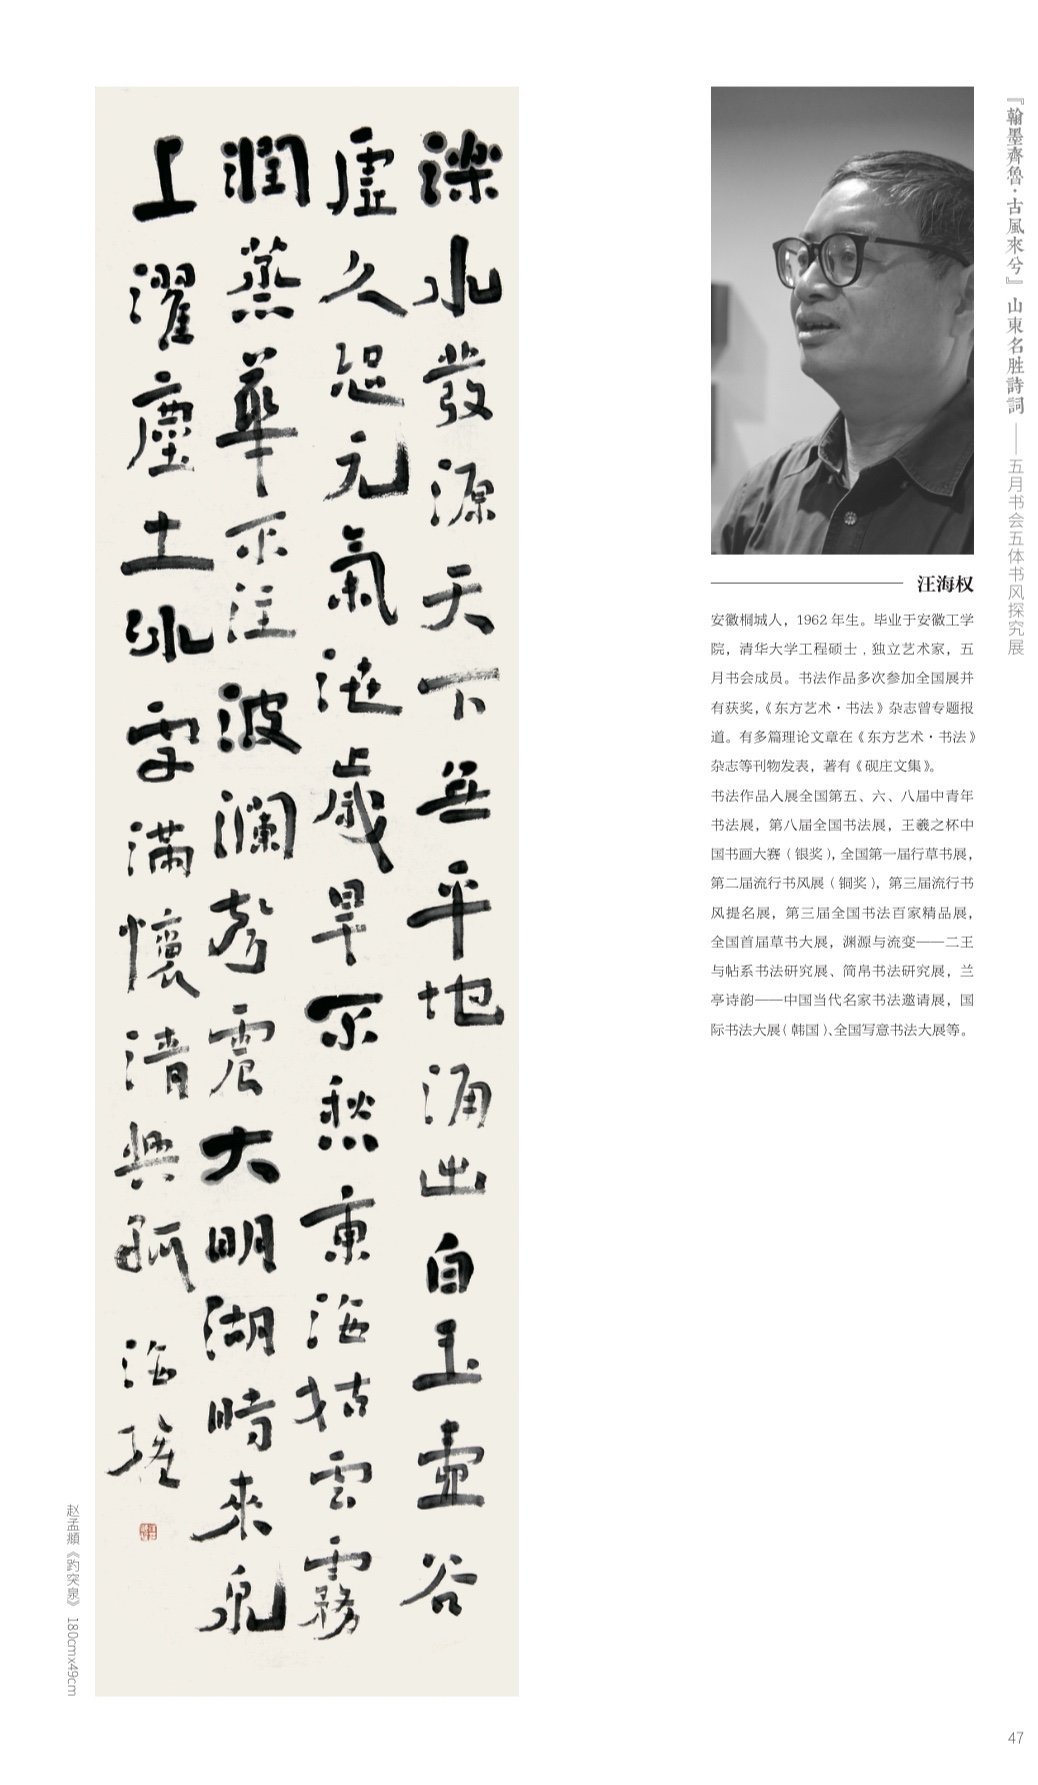 『翰墨齊魯·古風來兮』山東名胜詩詞——五月书会五体书风探究展
汪海权
安徽桐城人，1962 年生。毕业于安徽工学
院，清华大学工程硕士，独立艺术家，五
月书会成员。书法作品多次参加全国展并
有获奖，《东方艺术·书法》杂志曾专题报
道。有多篇理论文章在《东方艺术·书法》
杂志等刊物发表，著有《砚庄文集》。
书法作品人展全国第五、六、八届中青年
书法展，第八届全国书法展，王羲之杯中
国书画大赛（银奖），全国第一届行草书展，
第二届流行书风展（铜奖），第三届流行书
风提名展，第三届全国书法百家精品展，
全国首届草书大展，渊源与流变——二王
与帖系书法研究展、简帛书法研究展，兰
亭诗韵——中国当代名家书法邀请展，国
际书法大展（韩国）、全国写意书法大展等。
濼水發源天下無平地涌出自玉壺谷
虛久恐元氣洩歲旱不愁東海枯雲霧
潤蒸華不注波瀾聲震大明湖時來泉
上濯塵土冰雪滿懷清興孤 海權
赵孟頫《趵突泉》 180cmx49cm
47